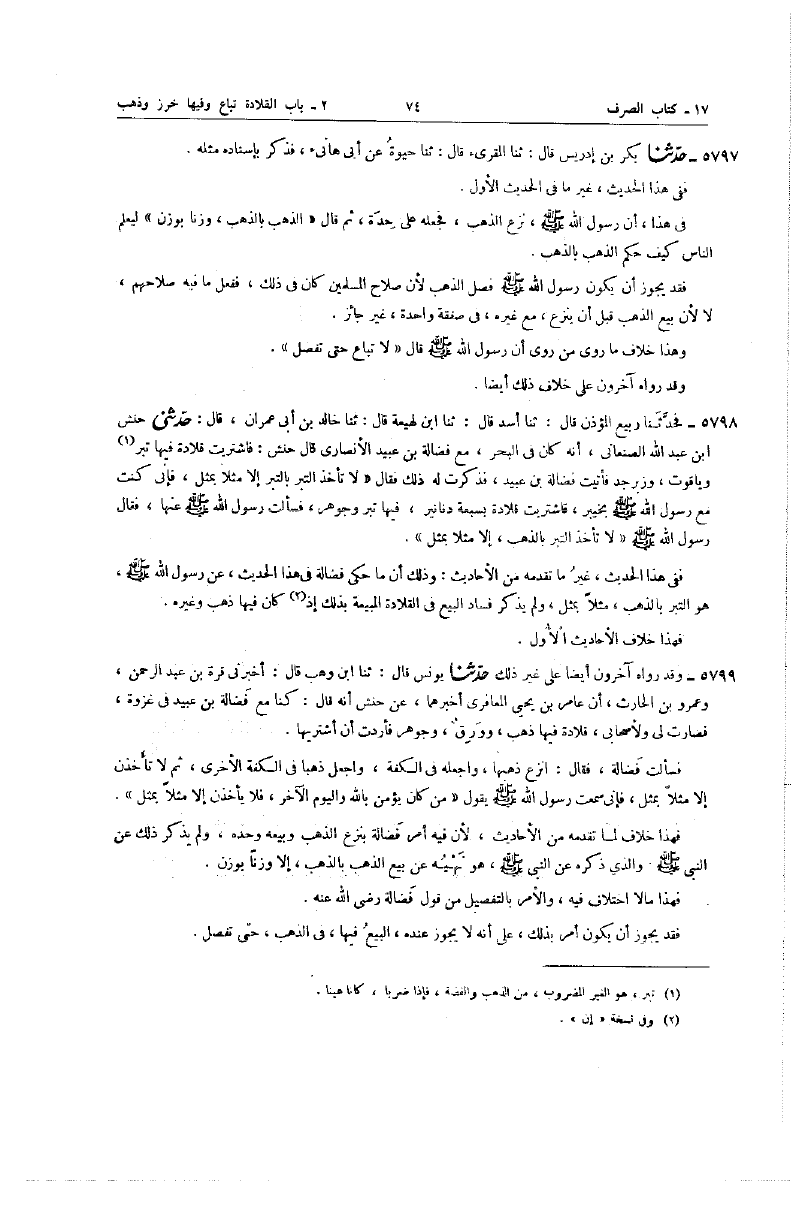 ١٧ ـ كتاب الصرف ٧٤ ٢ ـ باب القلادة تباع وفيها خرز وذهب
٥٧٩٧ ـ حدثنا بكر بن إدريس قال : ثنا المقرىء قال : ثنا حيوةُ عن أبى هانىء ، فذكر بإسناده مثله .
ففى هذا الحديث ، غير ما فى الحديث الأول .
فى هذا ، أن رسول الله ﷺ ، نزع الذهب ، فجعله على حِدَة ، ثم قال « الذهب بالذهب ، وزنا بوزن » ليعلم
الناس كيف حكم الذهب بالذهب .
فقد يجوز أن يكون رسول الله ﷺ فصل الذهب لأن صلاح المسلمين كان فى ذلك ، ففعل ما فيه صلاحهم ،
لا لأن بيع الذهب قبل أن ينزع ، مع غيره ، فى صفقة واحدة ، غير جائز .
وهذا خلاف ما روى من روى أن رسول الله ﷺ قال « لا تباع حتى تفصل » .
وقد رواه آخرون على خلاف ذلك أيضا .
٥٧٩٨ ـ فحدَّثَنا ربيع المؤذن قال : ثنا أسد قال : ثنا ابن لهيعة قال : ثنا خالد بن أبى عمران ، قال : حدثنى حنش
ابن عبد الله الصنعانى ، أنه كان فى البحر ، مع فضالة بن عبيد الأنصارى قال حنش : فاشتريت قلادة فيها تبر(١)
وياقوت ، وزبرجد فأتيت فضالة بن عبيد ، فذكرت له ذلك فقال « لا تأخذ التبر بالتبر إلا مثلا بمثل ، فإنى كنت
مع رسول الله ﷺ بخيبر ، فاشتريت قلادة بسبعة دنانير ، فيها تبر وجوهر ، فسألت رسول الله ﷺ عنها ، فقال
رسول الله ﷺ « لا تأخذ التبر بالذهب ، إلا مثلا بمثل » .
ففى هذا الحديث ، غيرُ ما تقدمه من الأحاديث : وذلك أن ما حكى فضالة فى هذا الحديث ، عن رسول الله ﷺ ،
هو التبر بالذهب ، مثلاً بمثل ، ولم يذكر فساد البيع فى القلادة المبيعة بذلك إذ(٢) كان فيها ذهب وغيره .
فهذا خلاف الأحاديث الأُول .
٥٧٩٩ ـ وقد رواه آخرون أيضا على غير ذلك حدثنا يونس قال : ثنا ابن وهب قال : أخبرنى قرة بن عبد الرحمن ،
وعمرو بن الحارث ، أن عامر بن يحيى المعافرى أخبرهما ، عن حنش أنه قال : كنا مع فَضالة بن عبيد فى غزوة ،
فصارت لى ولأصحابى ، قلادة فيها ذهب ، ووَرِقٌ ، وجوهر فأردت أن أشتريها .
فسألت فَضالة ، فقال : انزع ذهبها ، واجعله فى الكفة ، واجعل ذهبا فى الكفة الأخرى ، ثم لا تأخذن
إلا مثلاً بمثل ، فإنى سمعت رسول الله ﷺ يقول « من كان يؤمن بالله واليوم الآخر ، فلا يأخذن إلا مثلاً بمثل » .
فهذا خلاف لما تقدمه من الأحاديث ، لأن فيه أمر فَضالة بنزع الذهب وبيعه وحده ، ولم يذكر ذلك عن
النبى ﷺ والذى ذكره عن النبى ﷺ ، هو نَهْيُه عن بيع الذهب بالذهب ، إلا وزناً بوزن .
فهذا مالا اختلاف فيه ، والأمر بالتفصيل من قول فَضالة رضى الله عنه .
فقد يجوز أن يكون أمر بذلك ، على أنه لا يجوز عنده ، البيعُ فيها ، فى الذهب ، حتى تفصل .
(١) تبر ، هو الغير المضروب ، من الذهب والفضة ، فإذا ضربا ، كانا عينا .
(٢) وفى نسخة « إن » .